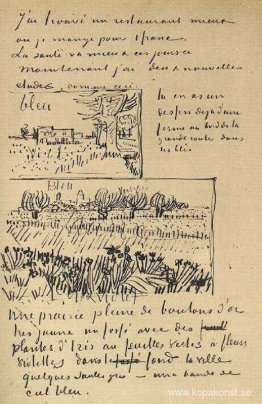 J'ai trouvé un restaurant mieux
où je mange pour 1 franc.
La santé va mieux ces jours ci
Maintenant j'ai deux nouvelles
études comme ceci
bleu
tu en as un
dessin déjà d'une
ferme au bord de la
grande route dans
les blés
Bleu
Une prairie pleine de boutons d'or
très jaune un fossé avec des
plantes d'Iris aux feuilles vertes à fleurs
violettes dans le fond la ville
quelques saules gris – une bande de
ciel bleu.
www.kopakonst.se